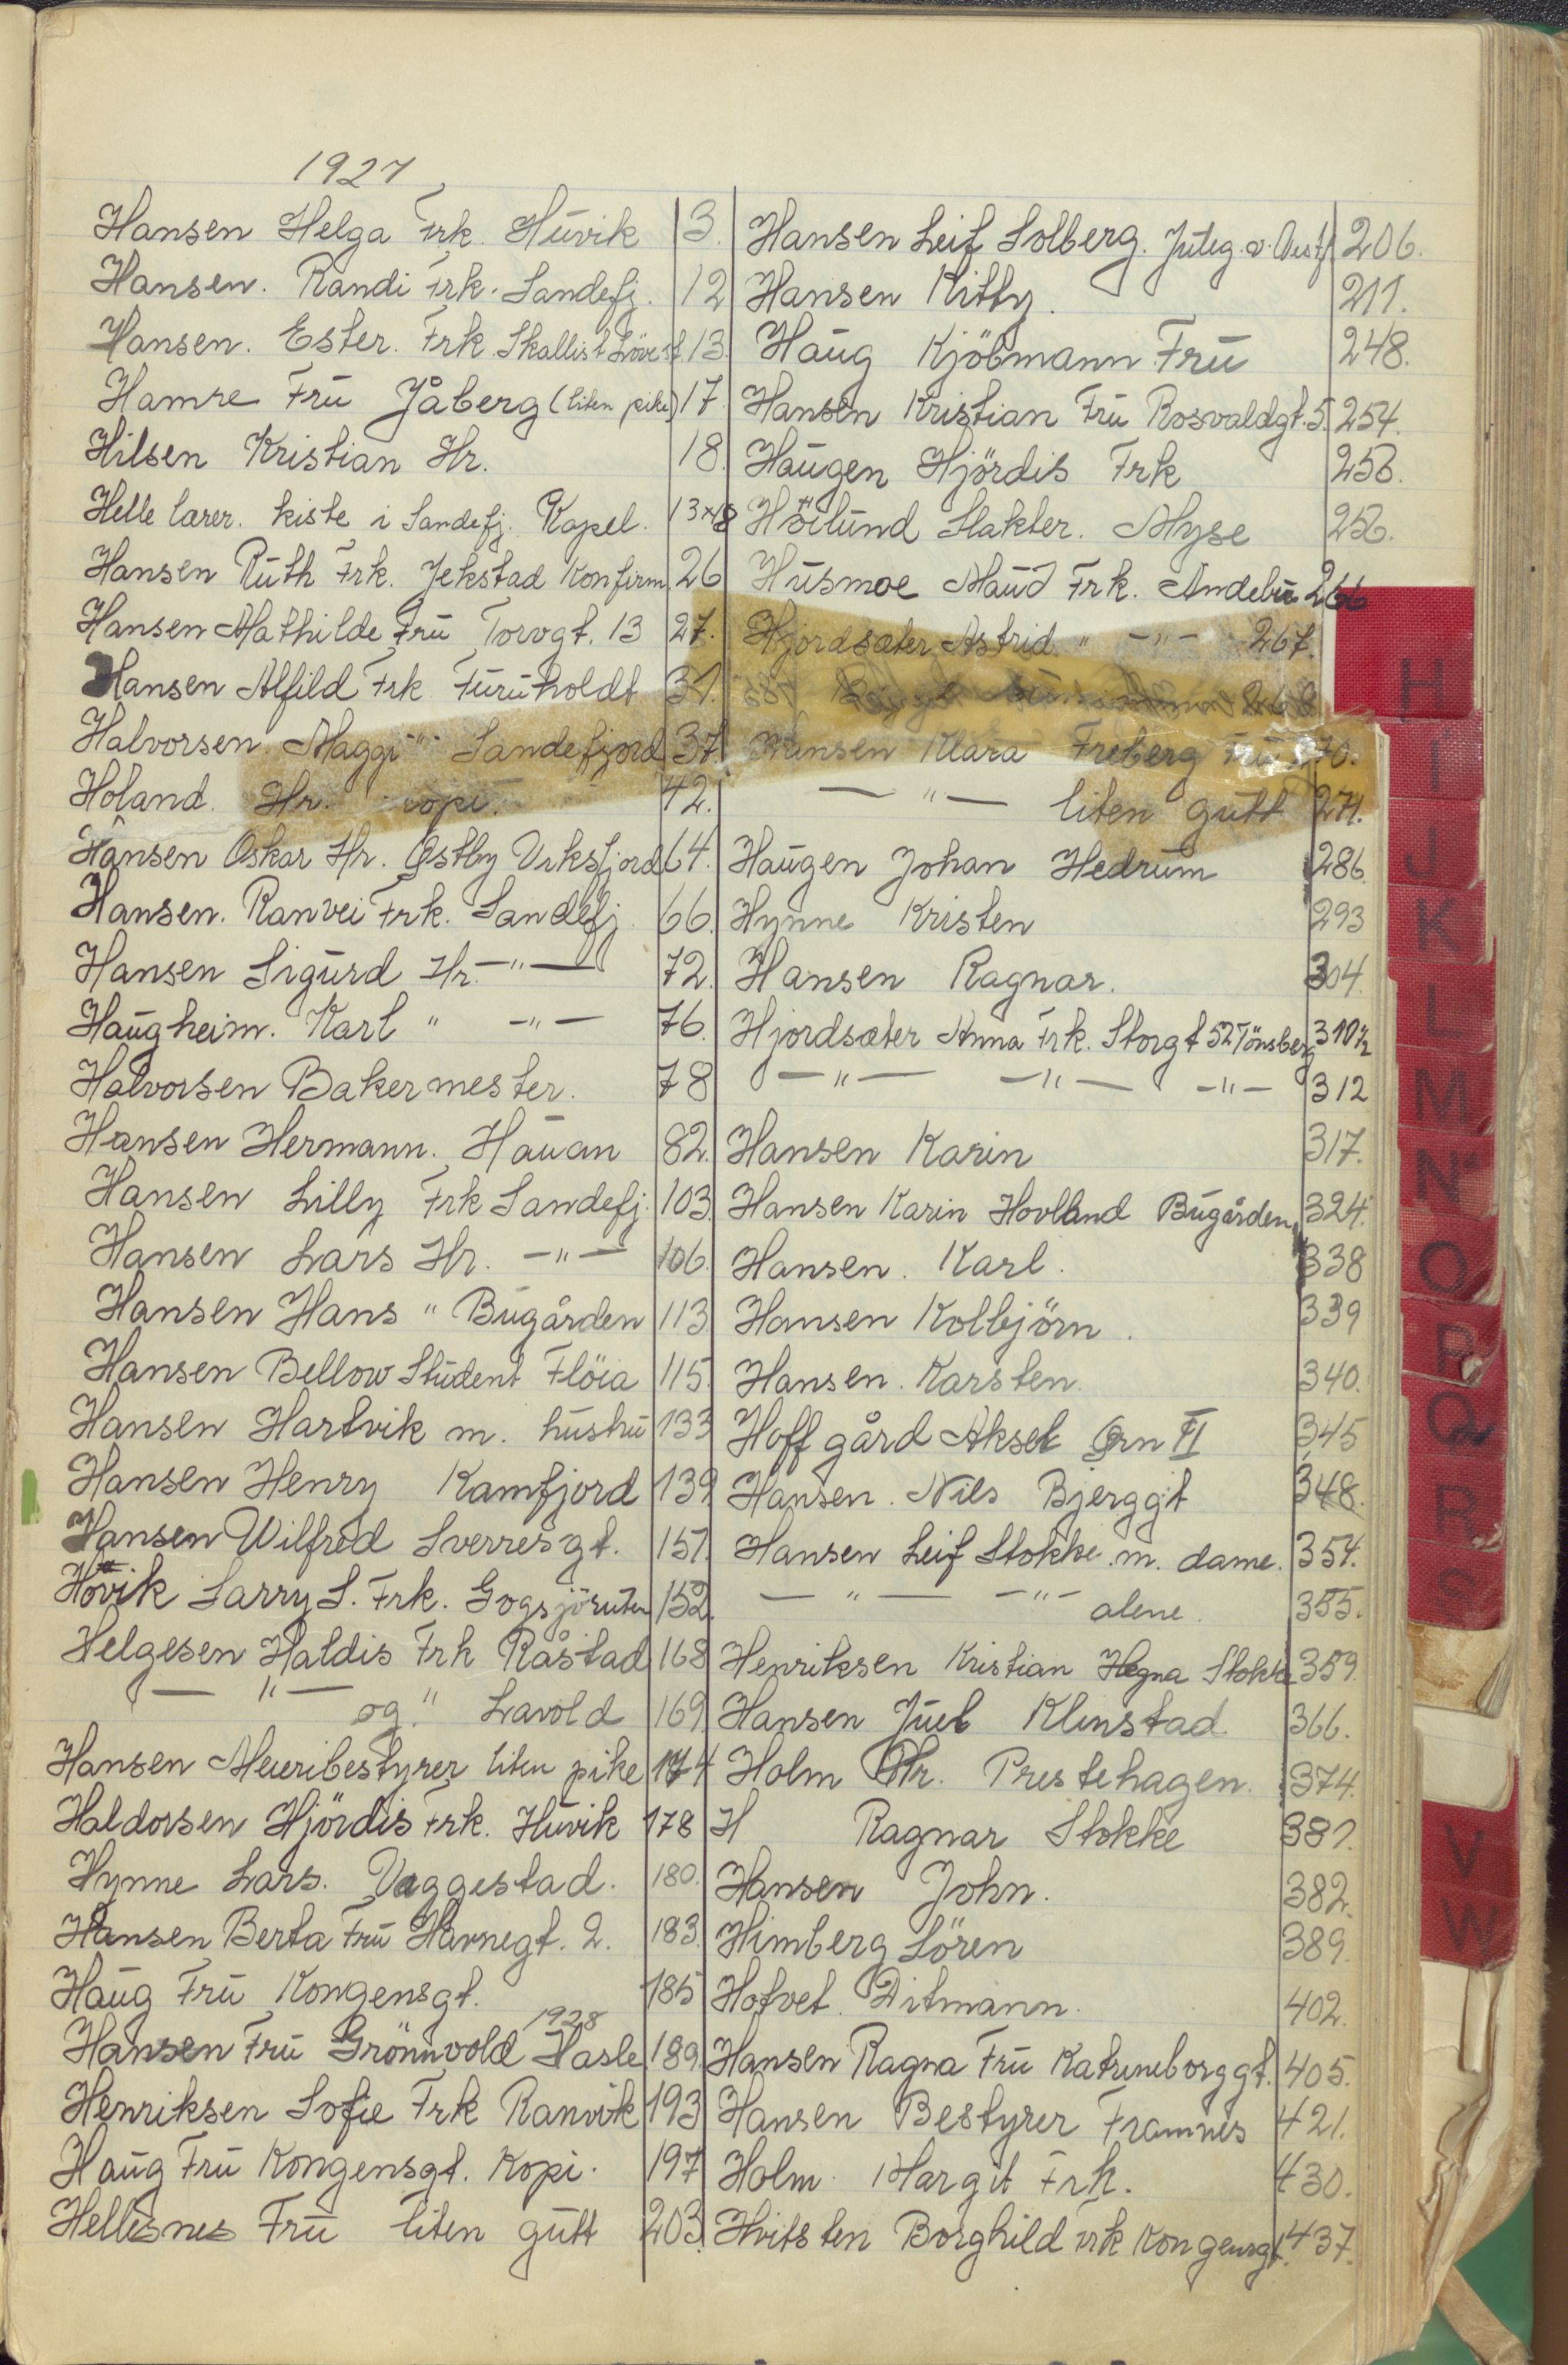 1927
Hansen Helga Frk. Huvik 3.
Hansen. Randi Frk. Sandefj. 12
Hansen. Ester. Frk Skallist Løvest. 13.
Hamre Frū Jåberg (liten pike) 17.
Hilsen Kristian Hr. 18.
Helle lærer. kiste i Sandefj. Kapel. 13x18
Hansen Rūth Frk. Jekstad Konfirm. 26
Hansen Mathilde Frū Torvgt. 13 27.
Hansen Alfild Frk Fūrūholdt 31.
Halvorsen. Maggi " Sandefjord 37.
Holand. Hr. kopi. 42.
Hansen Oskar Hr. Østby Urksfjord 64.
Hansen. Ranvei Frk. Sandefj. 66.
Hansen Sigūrd Hr. —"— 72.
Haūgheim. Karl " —"— 76.
Halvorsen Bakermester. 78
Hansen Hermann. Haūan 82.
Hansen Lilly Frk Sandefj. 103.
Hansen Lars Hr. —"— 106.
Hansen Hans " Būgården 113
Hansen Bellow Stūdent Flöia 115.
Hansen Hartvik m. hūstrū 133
Hansen Henry Kamfjord 139
Hansen Wilfred Sverresgt. 151.
Hövik Sarry S. Frk. Gogsjöruten 152.
Helgesen Haldis Frk Råstad 168
—"— og " Lavold 169
Hansen Meieribestyrer liten pike 174
Haldorsen Hjördis Frk. Hūvik 178
Hynne Lars. Vaggestad. 180.
Hansen Berta Frū Havnegt. 2. 183.
Haūg Frū Kongensgt. 185
1928
Hansen Frū Grönnvold Hasle 189.
Henriksen Sofie Frk Ranvik 193
Haūg Frū Kongensgt. Kopi. 197
Hellesnes Frū liten gūtt 203.
Hansen Leif Solberg. Juteg. v. 206.
Hansen Kitty. 211.
Haūg Kjöbmann Frū 248.
Hansen Kristian Frū Rosvaldgt. 5. 254.
Haūgen Hjördis Frk 258.
Höilund Slakter. Myse 256.
Hūsmoe Maūd Frk. Andebū 266
Hjordsæter Astrid " —"— 267.
268
Hansen Klara Freberg Frū 270.
—"— liten gūtt 271.
Haūgen Johan Hedrūm 286.
Hynne Kristen 293
Hansen Ragnar. 304.
Hjordsæter Anna Frk. Storgt 52 Tönsberg 310½
—"— —"— —"— 312
Hansen Karin 317.
Hansen Karin Hovland Būgården 324.
Hansen. Karl. 338
Hansen Kolbjörn. 339
Hansen. Karsten. 340.
Hoffgård Aksel Ørn II 345
Hansen. Nils Bjerggt 348.
Hansen Leif Stokke. m. dame. 354.
—"— —"— alene. 355.
Henriksen Kristian Hegna Stokke 359.
Hansen Juel Klinstad 366.
Holm Hr. Prestehagen. 374.
H Ragnar Stokke 381.
Hansen John. 382.
Himberg Sören 389.
Hotvet. Ditmann. 402.
Hansen Ragna Frū Katrineborggt. 405.
Hansen Bestyrer Framnes 421.
Holm. Margit Frk. 430.
Hvitsten Borghild Frk Kongensgt. 437.
H
I
J
K
L
M
N
O
P
Q
R
S
V
W